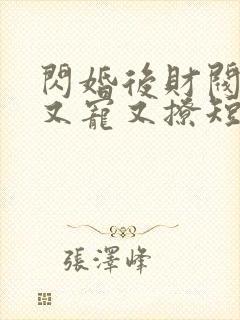 閃婚後財閥
又寵又撩短
張澤峰